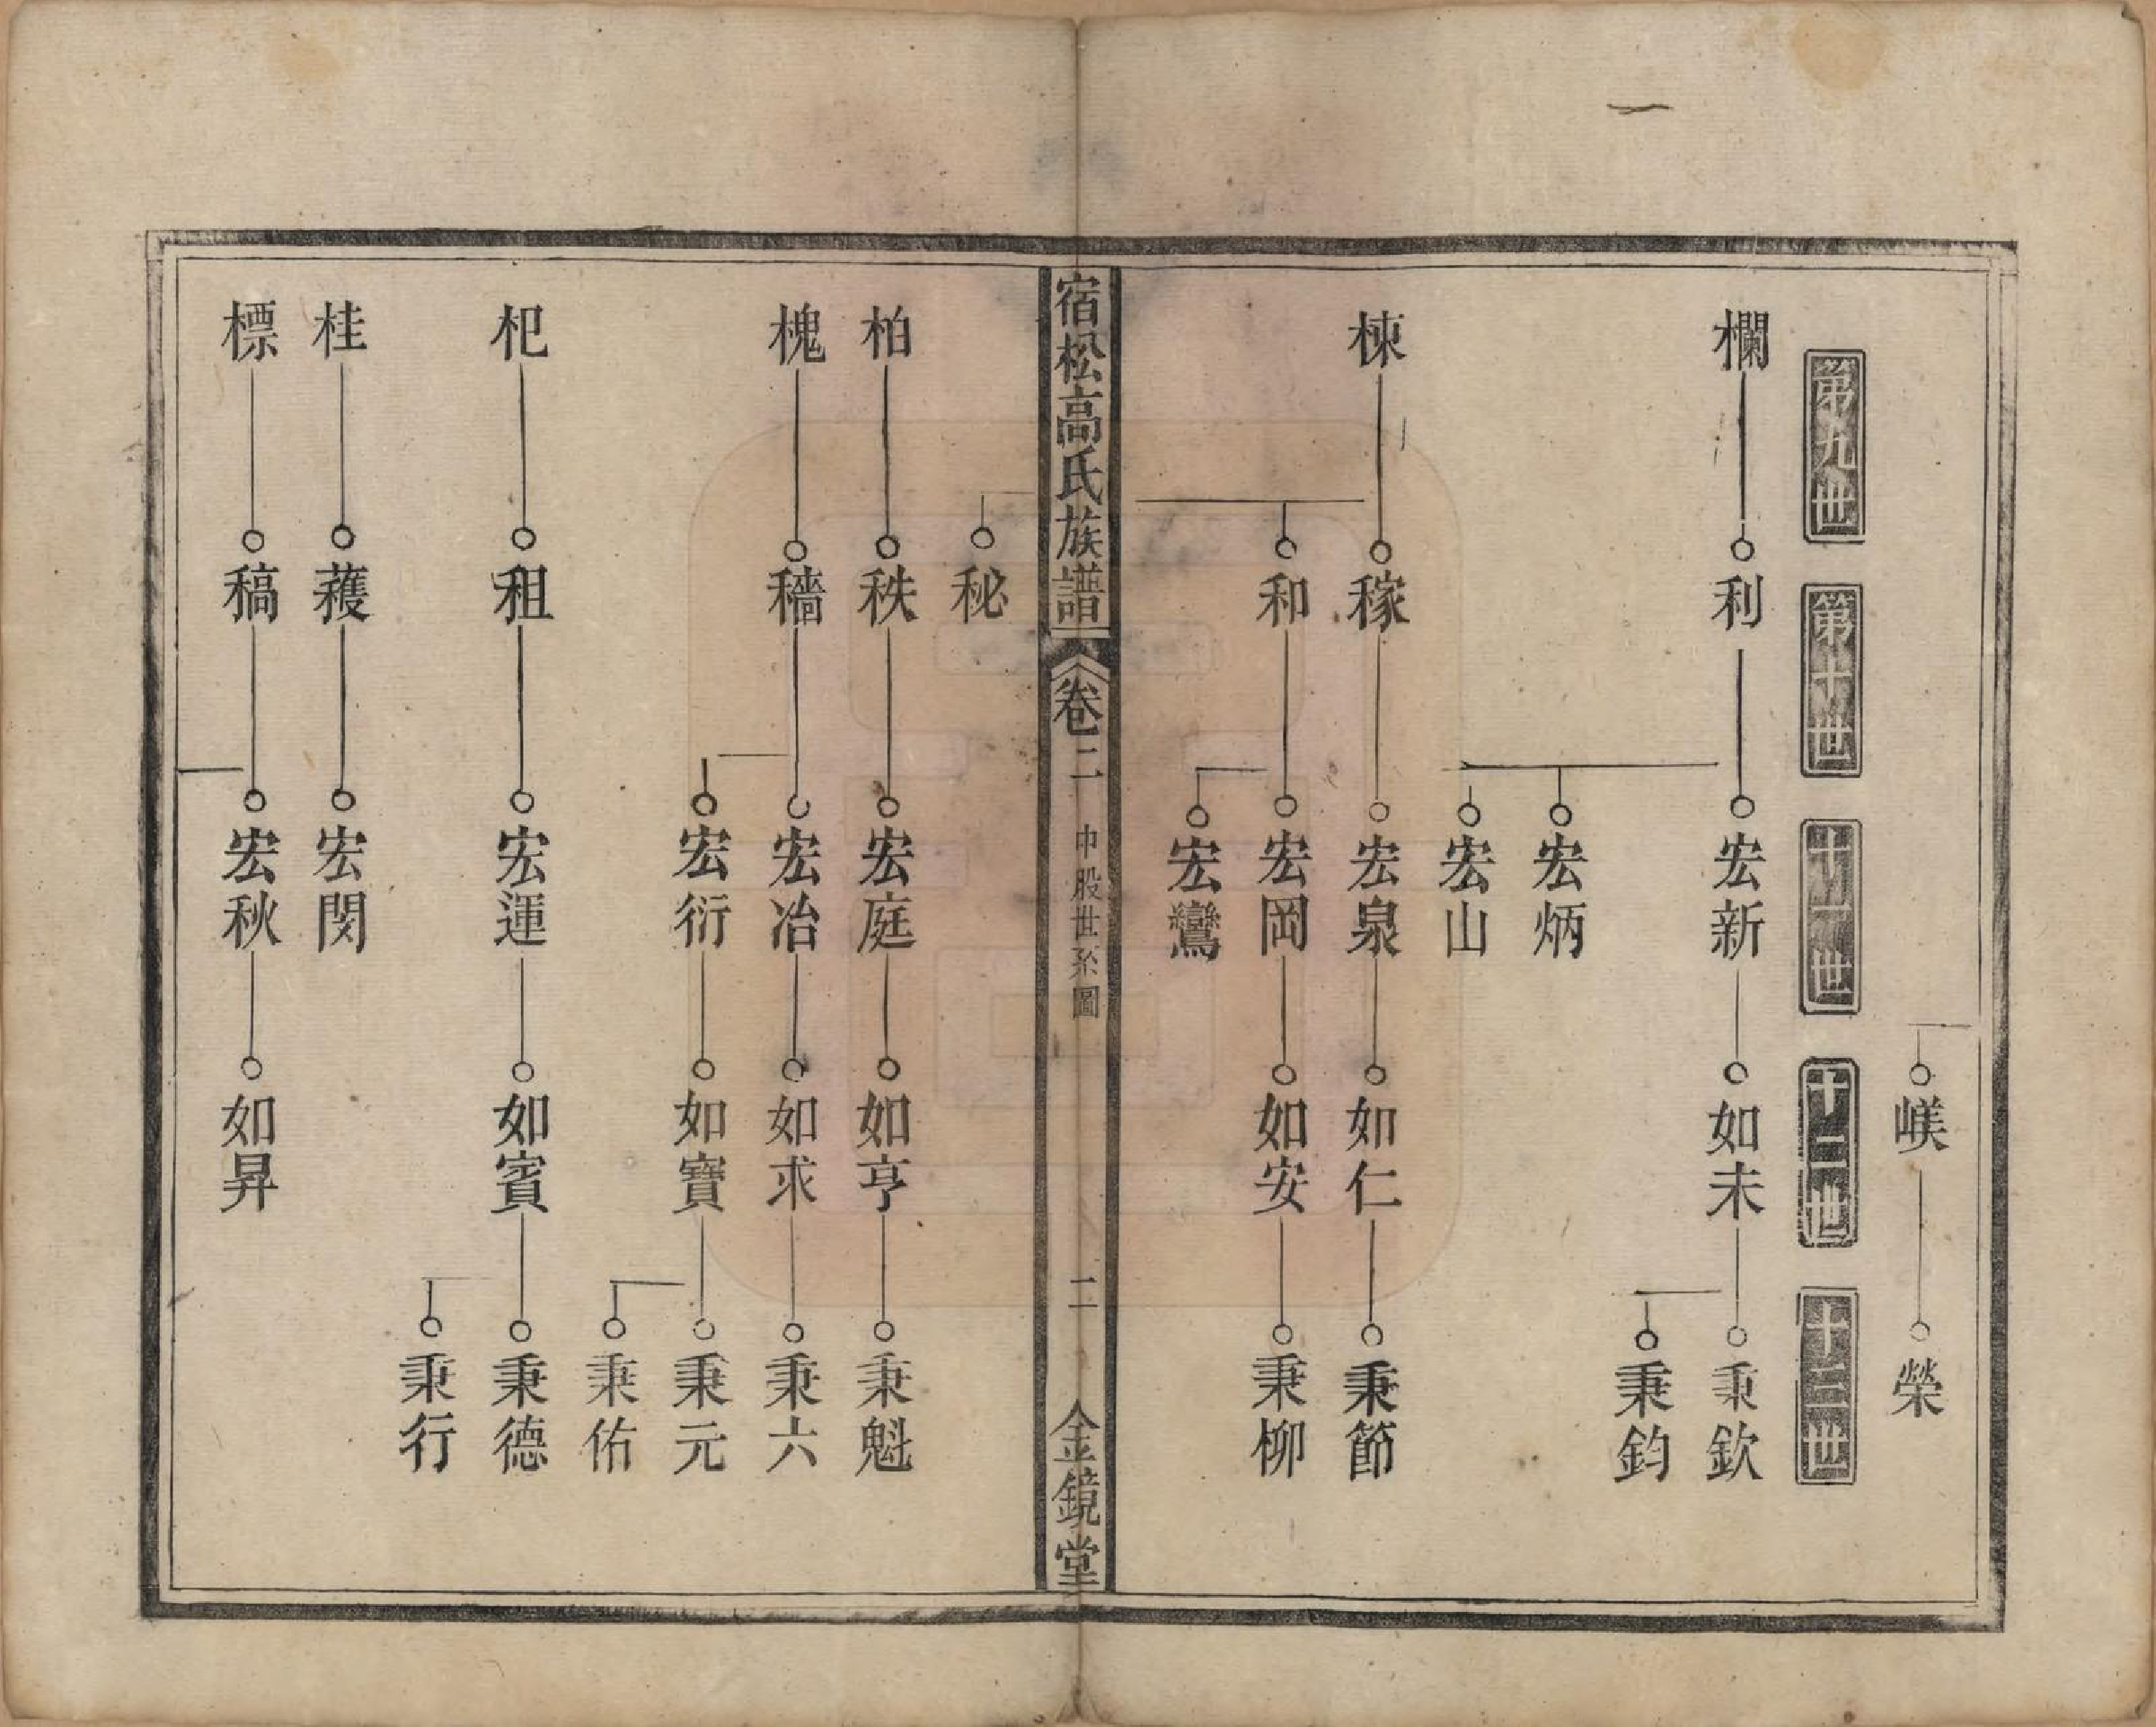 嵄
榮
第九世
第十世
十一世
十二世
十三世
欄
利
宏新
如未
秉欽
秉鈞
宏炳
宏山
棟
稼
宏泉
如仁
秉節
和
宏岡
如安
秉柳
宏鸞
宿松高氏族譜
卷二
中股世系圖
二
金鏡堂
秘
柏
秩
宏庭
如亨
秉魁
槐
穡
宏冶
如求
秉六
宏衍
如寶
秉元
秉佑
杞
租
宏運
如賓
秉德
秉行
桂
蒦
宏閔
標
稿
宏秋
如昇